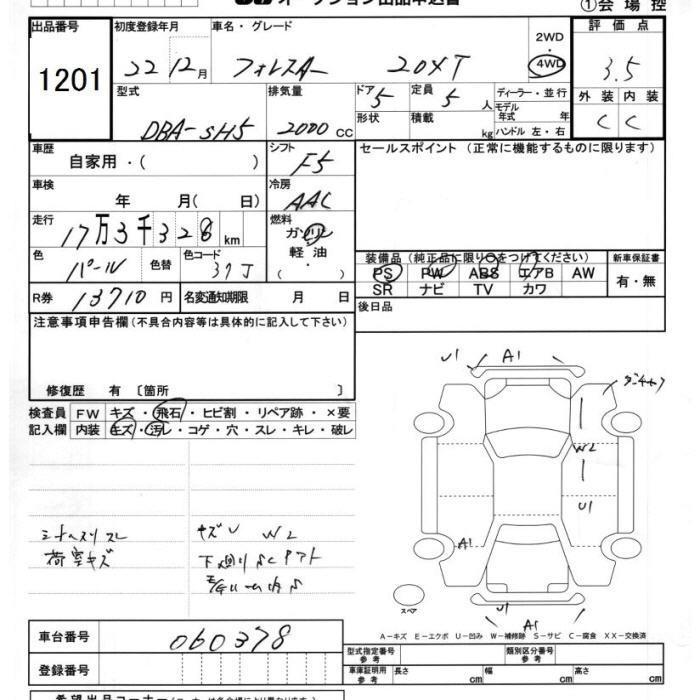 オークション出品申込書 ①会場控
出品番号 初度登録年月 車名・グレード 2WD 評価点
1201 22 12月 フォレスター 20XT ・ 4WD 3.5
型式 排気量 ドア 5 定員 5人 ディーラー・並行 外装 内装
DBA-SH5 2000 CC 形状 積載 kg モデル年式 年 C C
ハンドル 左・右
車歴 自家用・( ) シフト F5 セールスポイント (正常に機能するものに限ります)
車検 年 月( 日) 冷房 AAC
走行 17万3千328km 燃料 ガソリン
軽油
( ・ )
色 パール 色替 色コード 37J 装備品 (純正品に限り○をつけてください) 新車保証書
PS PW ABS エアB AW 有・無
R券 13710円 名変通知期限 月 日 SR ナビ TV カワ
注意事項申告欄 (不具合内容等は具体的に記入して下さい) 後日品
修復歴 有 〔箇所 〕
検査員 FW キズ・飛石・ヒビ割・リペア跡・×要
記入欄 内装 キズ・汚レ・コゲ・穴・スレ・キレ・破レ
U1 A1
W2
U1
A1
シートスリスレ キズU W2
荷室キズ
スペア U1 A1
A-キズ E-エクボ U-凹み W-補修跡 S-サビ C-腐食 XX-交換済
車台番号 060378
登録番号
型式指定番号 参考 類別区分番号 参考
車庫証明用 参考 長さ cm 幅 cm 高さ cm
希望出品コーナー